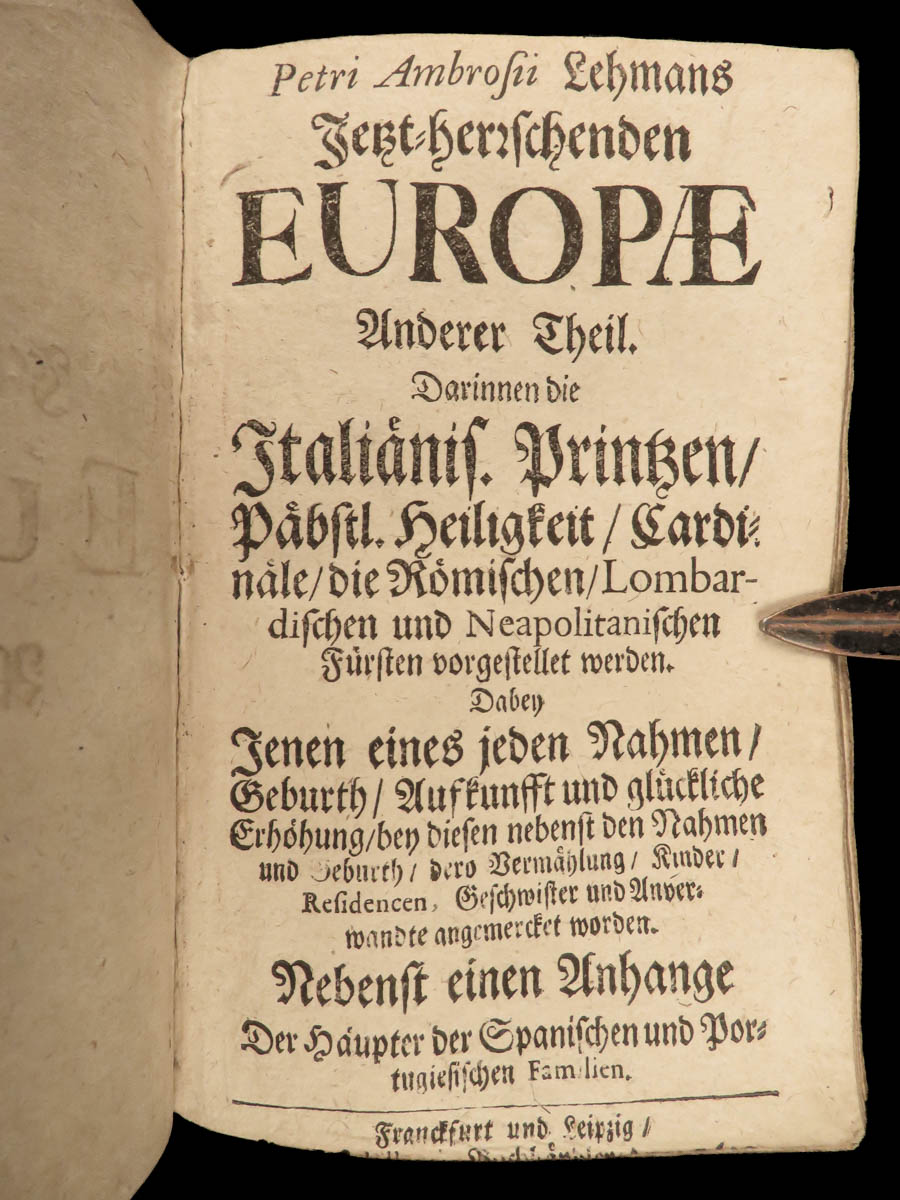 Petri Ambroſii Lehmans
Jetzt-herꝛſchenden
EUROPÆ
Anderer Theil.
Darinnen die
Italiäniſ. Printzen/
Päbſtl. Heiligkeit / Cardi-
näle/ die Römiſchen/ Lombar-
diſchen und Neapolitaniſchen
Fürſten vorgeſtellet werden.
Dabey
Jenen eines jeden Nahmen/
Geburth/ Aufkunfft und glückliche
Erhöhung/bey dieſen nebenſt den Nahmen
und Geburth/ dero Vermählung/ Kinder/
Reſidencen, Geſchwiſter und Anver-
wandte angemercket worden.
Nebenſt einen Anhange
Der Häupter der Spaniſchen und Por-
tugieſiſchen Familien.
Franckfurt und Leipzig/